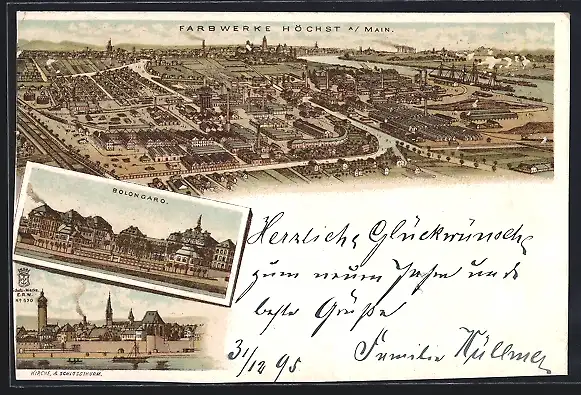 FARBWERKE HÖCHST A/ MAIN.
BOLONGARO.
Schutz-Marke.
E.R.N.
Nº 570
KIRCHE, & SCHLOSSTHURM.
Herzliche Glückwünsche
zum neuen Jahr und
beste Grüße
31/12 95
Familie Müllmer